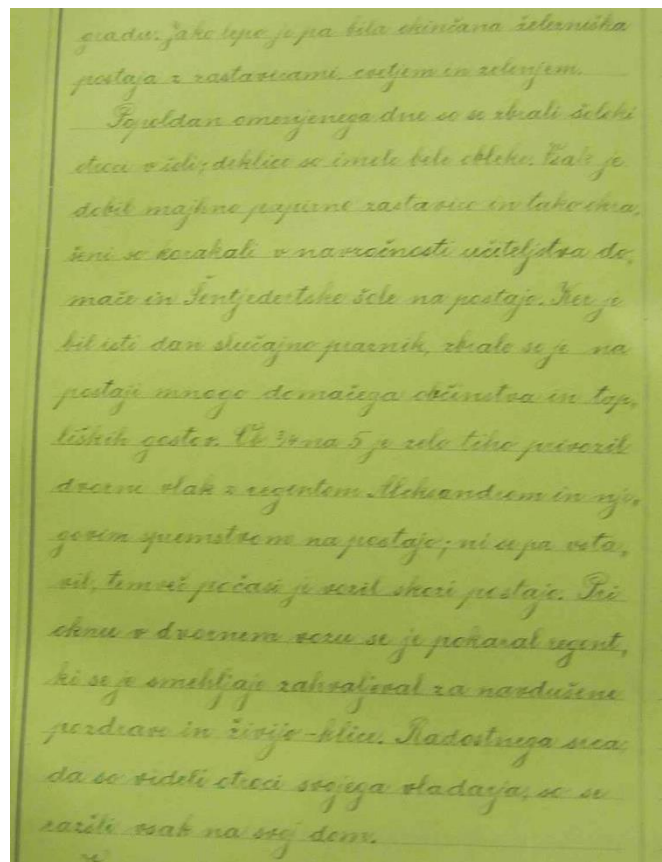 gradu. Jako lepo je pa bila okinčana železniška
postaja z zastavicami, cvetjem in zelenjem.
Popoldan omenjenega dne so se zbrali šolski
otroci v šoli; deklice so imele bele obleke. Vsak je
dobil majhno papirno zastavico in tako okra,
šeni so korakali v navzočnosti učiteljstva do,
mače in Šentjedertske šole na postajo. Ker je
bil isti dan slučajno praznik, zbralo se je na
postaji mnogo domačega občinstva in top,
liških gostov. Ob 3/4 na 5 je zelo tiho privozil
dvorni vlak z regentom Aleksandrom in nje,
govim spremstvom na postajo; ni se pa usta,
vil, temveč počasi je vozil skozi postajo. Pri
oknu v dvornem vozu se je pokazal regent,
ki se je smehljaje zahvaljeval za navdušene
pozdrave in živijo-klice. Radostnega srca,
da so videli otroci svojega vladarja, so se
razšli vsak na svoj dom.